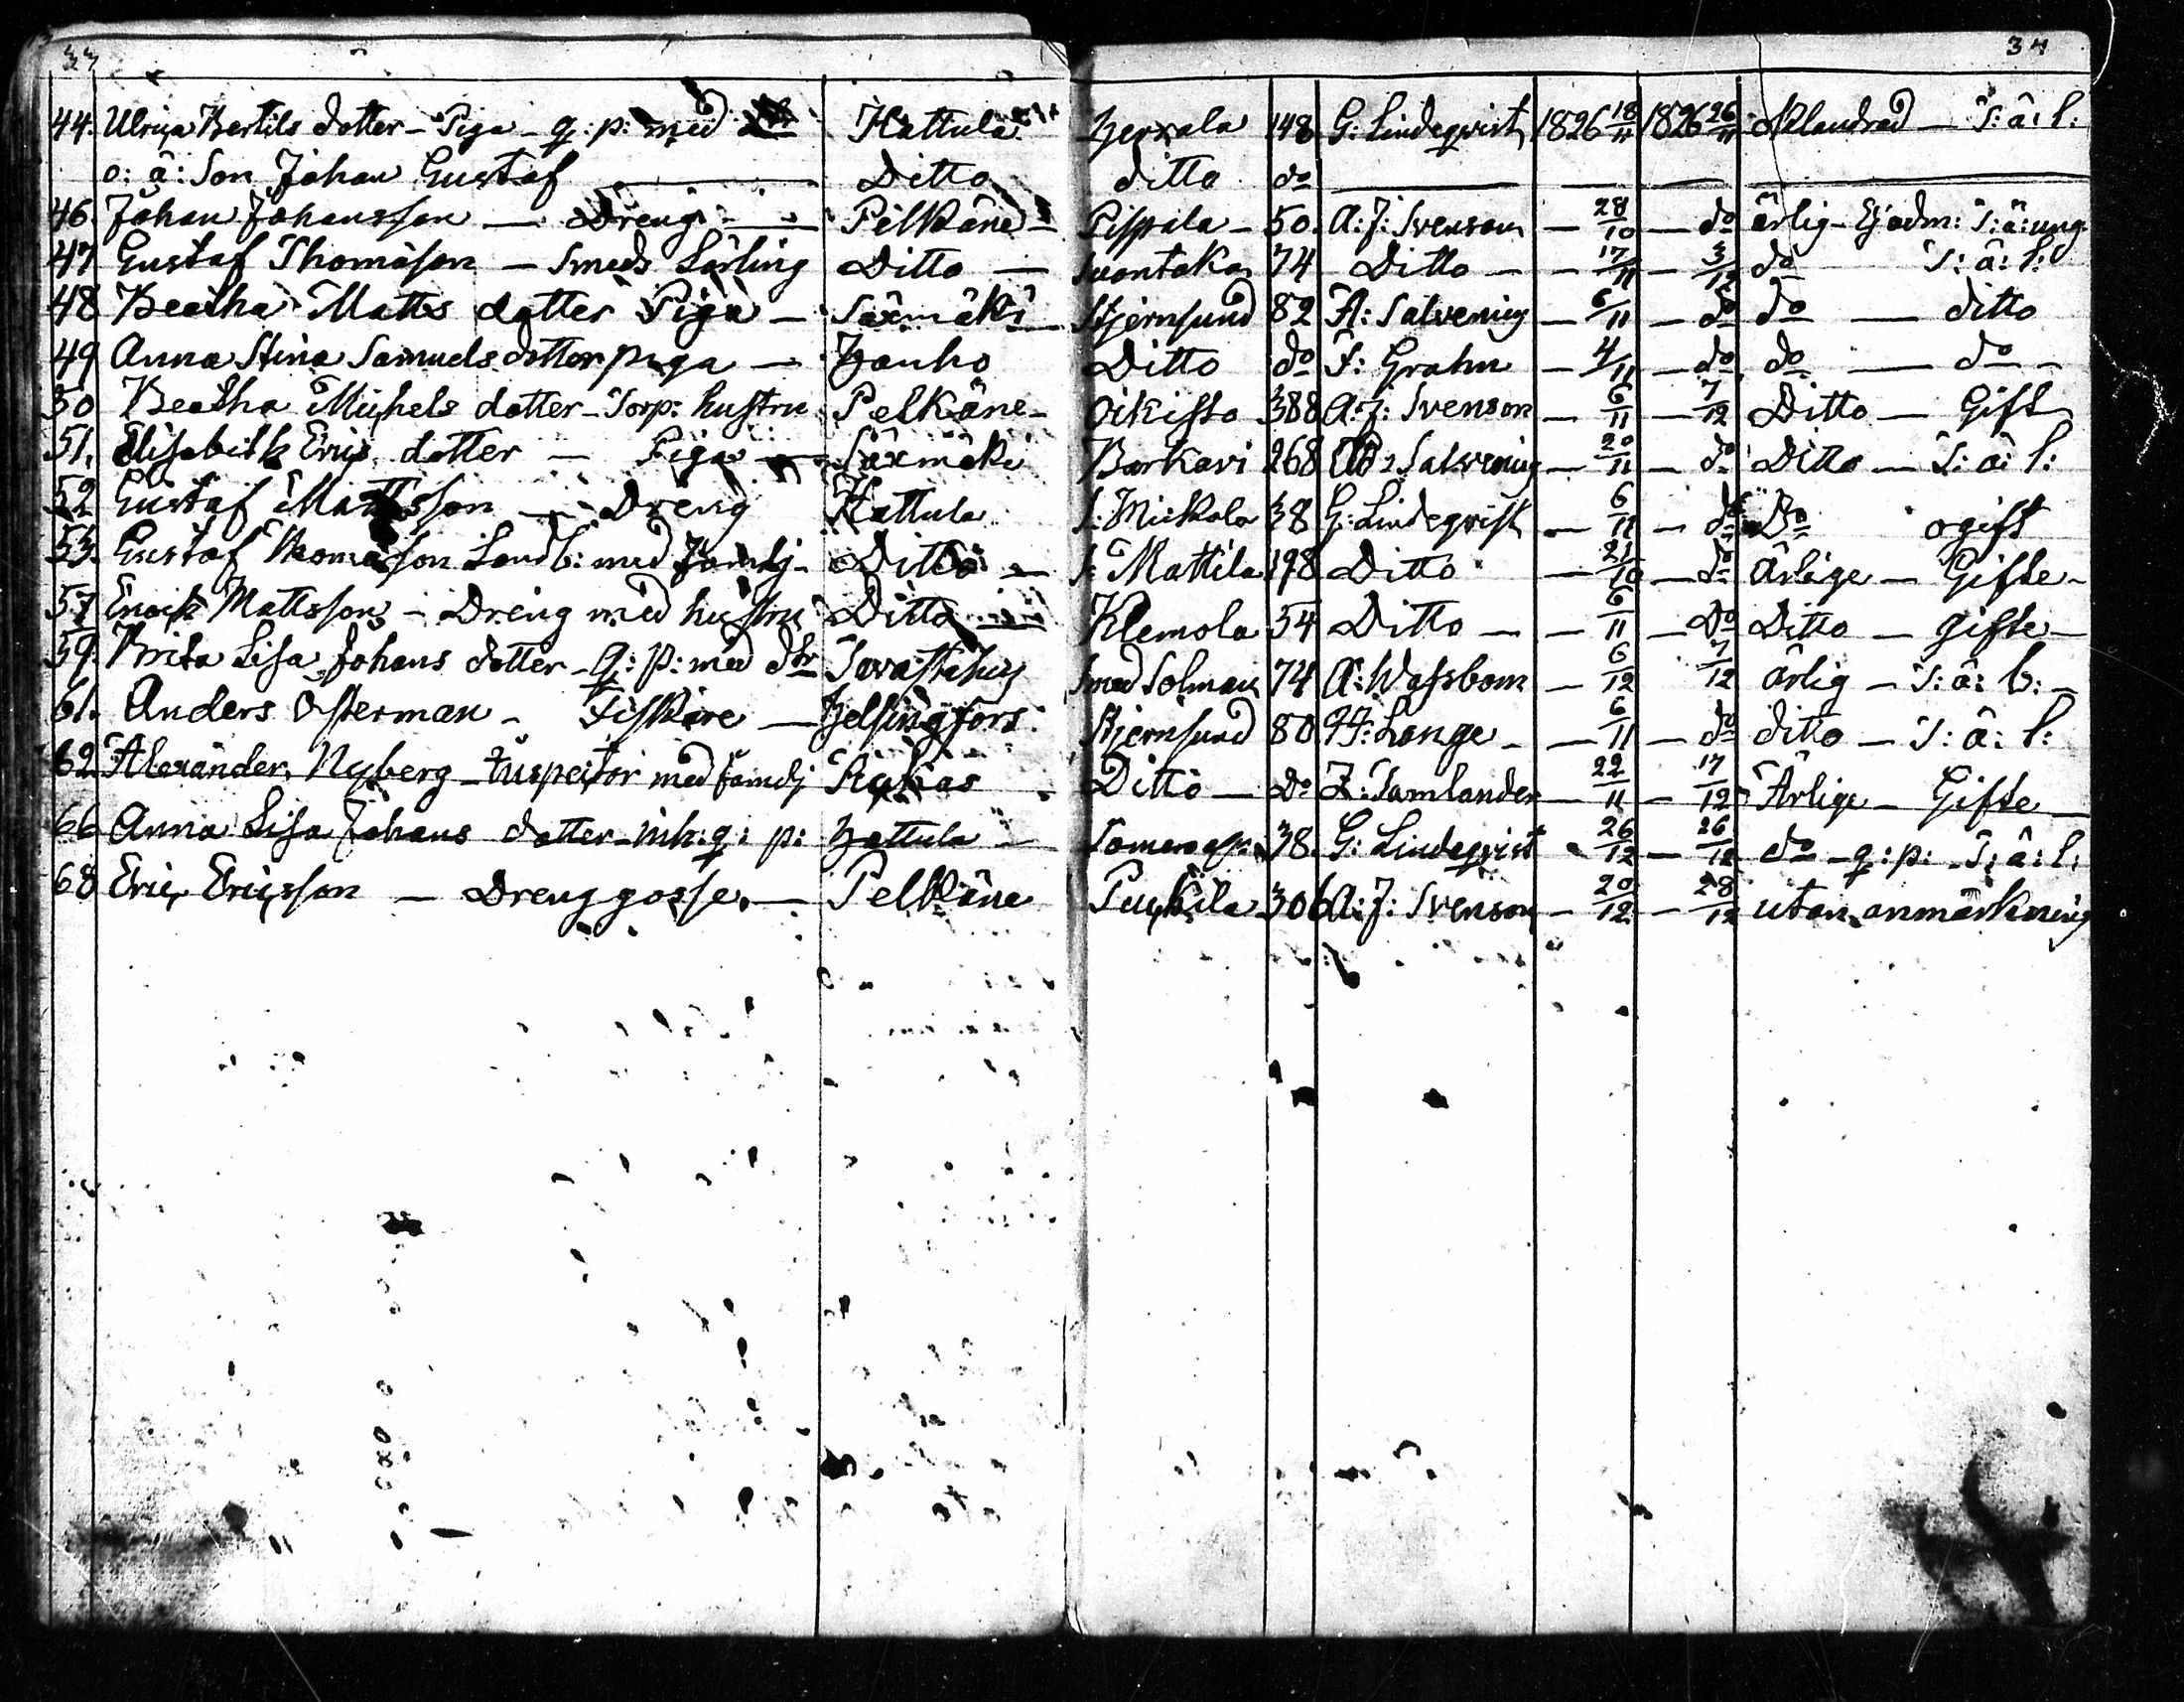 33 34
44. Ulrica Bertils dotter - Piga - q: p: med Hattula Herrala 148 G: Lindeqvist 1826 18/11 1826 26/11 Klandrad - T: ä: l:
o: ä: Son Johan Gustaf Ditto ditto do
46. Johan Johansson - Dreng - Pelkäne - Pispala - 50. A: J: Svenson - 28/10 - do ärlig - Ej adm: T: ä: ung.
47 Gustaf Thomasson - Smeds Lärling Ditto - Vontaka 74 Ditto - - 17/11 - 3/12 do T: ä: l:
48 Beatha Matts dotter Piga - Säxmäki - Stjernsund 82 A: Salvenius - 6/11 - do do - ditto
49 Anna Stina Samuels dotter piga - Hauho Ditto do F: Grahn - 4/11 - do do - do -
50 Beatha Michels dotter - Torp: hustru Pelkäne - Oikisto 388 A: J: Svenson - 6/11 - 7/12 Ditto - Gift
51. Elisabeth Erics dotter - Piga - Säxmäki Barkavi 268 Salvenius - 20/11 - do Ditto - T: ä: l:
52 Gustaf Mattsson - Dreng Hattula S: Mickola 38 G: Lindeqvist - 6/11 - do Do ogift
53. Gustaf Thomasson Landb: med Famlj - Ditto - S: Mattila 198 Ditto - 21/10 - do Ärlige - Gifte -
57 Enock Mattsson - Dreng med hustru Ditto - Klemola 54 Ditto - - 6/11 - Do Ditto - gifte -
59. Brita Lisa Johans dotter - Q: p: med dtr Tavastehus med Solman 74 A: Wassbom - 6/12 7/12 ärlig - T: ä: b: -
61. Anders Österman - Fiskare - Helsingfors Stjernsund 80 Lange - - 6/11 - do ditto - T: ä: l:
62. Alexander Nyberg - Inspector med famlj Ditto - Do Z: Tamlander - 22/11 - 17/12 Ärlige - Gifte
66 Anna Lisa Johans dotter - inh: q: p: Hattula - 38. G: Lindeqvist - 26/12 - 26/12 do - q: p: - T: ä: l:
68 Eric Ericsson - Drenggosse. - Pelkäne Puckila 306 A: J: Svenson - 20/12 - 28/12 utan anmärkning